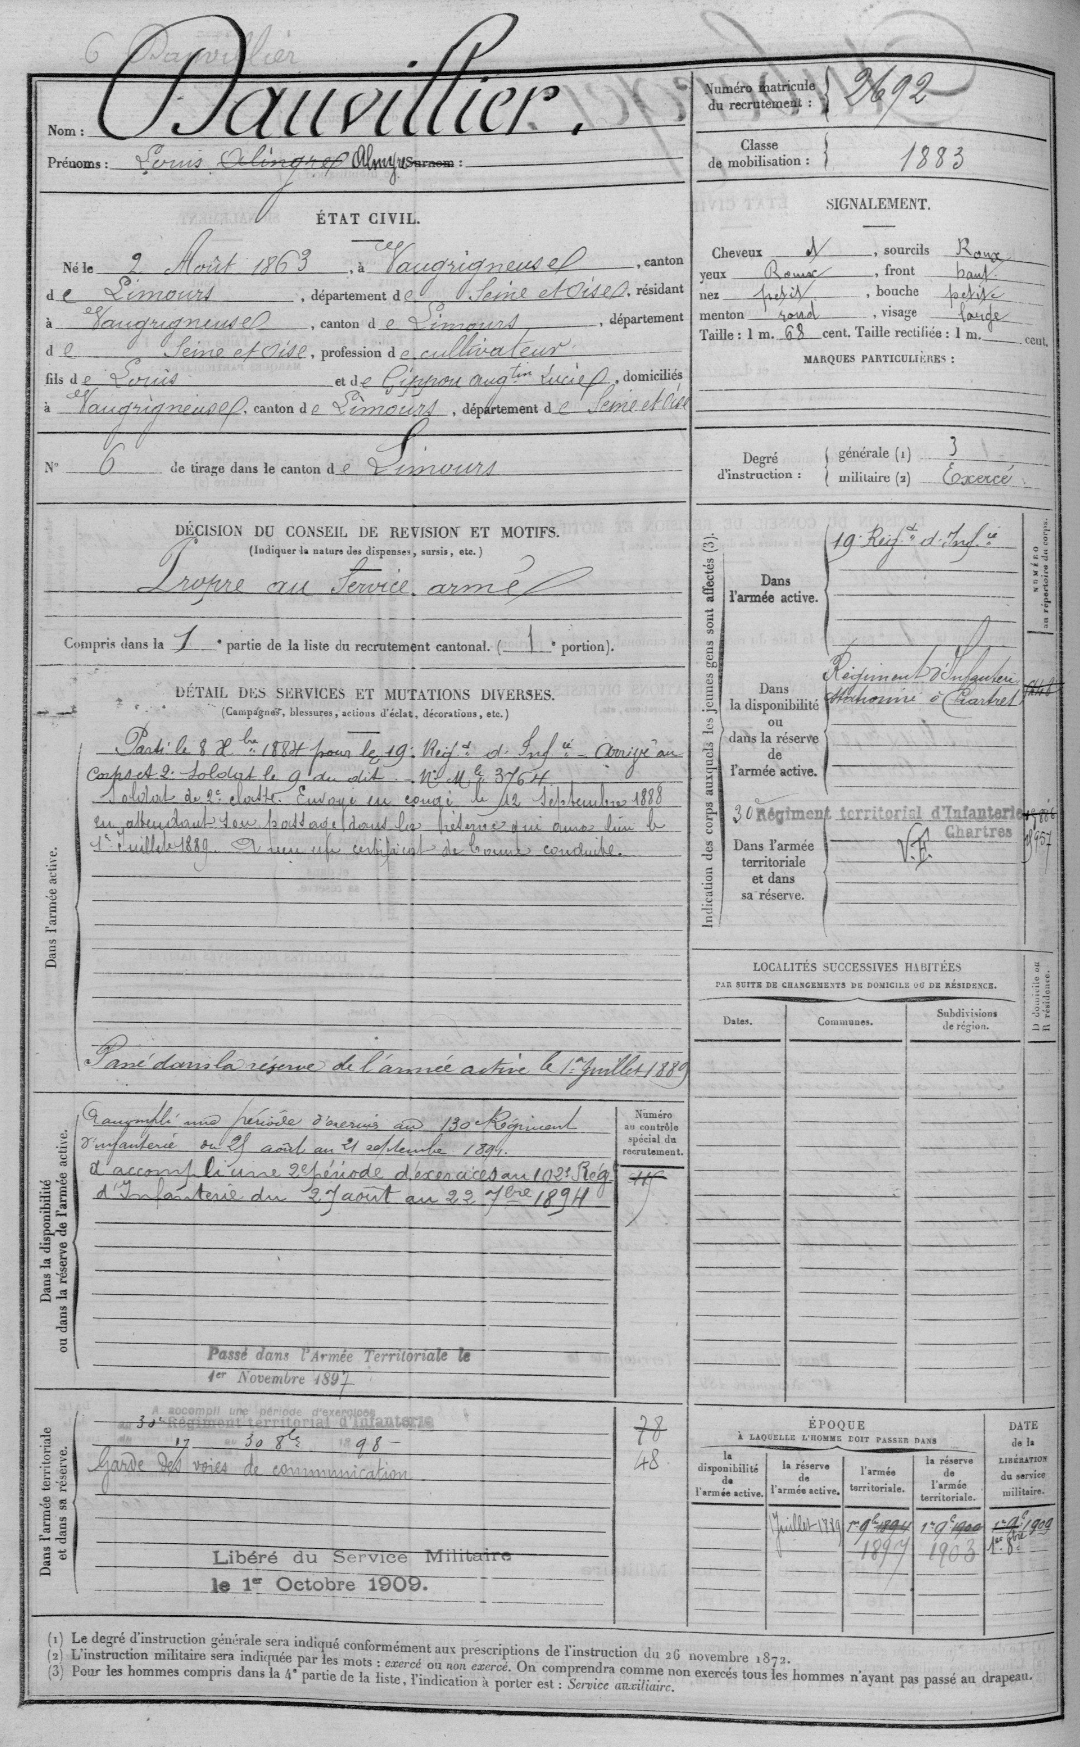 6 Dauvillier
Nom : Dauvillier.
Prénoms : Louis Alingre Surnom :
Numéro matricule du recrutement : 2692
Classe de mobilisation : 1883
ÉTAT CIVIL.
Né le 2 Août 1863, à Vaugrigneuse, canton
de Limours, département de Seine et Oise, résidant
à Vaugrigneuse, canton de Limours, département
de Seine et Oise, profession de cultivateur
fils de Louis et de Gippon Aug.tin Lucie, domiciliés
à Vaugrigneuse, canton de Limours, département de Seine et Oise
N° 6 de tirage dans le canton de Limours
SIGNALEMENT.
Cheveux d, sourcils Roux
yeux Roux, front haut
nez petit, bouche petite
menton rond, visage large
Taille : 1 m. 68 cent. Taille rectifiée : 1 m. cent.
MARQUES PARTICULIÈRES :
Degré d'instruction : générale (1) 3
militaire (2) Exercé
DÉCISION DU CONSEIL DE REVISION ET MOTIFS.
(Indiquer la nature des dispenses, sursis, etc.)
Propre au Service armé
Compris dans la 1e partie de la liste du recrutement cantonal. (1e portion).
DÉTAIL DES SERVICES ET MUTATIONS DIVERSES.
(Campagnes, blessures, actions d'éclat, décorations, etc.)
Dans l'armée active.
Parti le 8 Xbre 1884 pour le 19e Régt d'Infie – Arrivé au
corps et 2e soldat le 9 du dit. No Mle 3764
Soldat de 2e classe. Envoyé en congé le 12 Septembre 1888
en attendant son passage dans la réserve qui aura lieu le
1er Juillet 1889. A reçu un certificat de bonne conduite.
Passé dans la réserve de l'armée active le 1er Juillet 1889
Dans la disponibilité
ou dans la réserve de l'armée active.
Numéro
au contrôle
spécial du
recrutement.
A accompli une période d'exercices au 130e Régiment
d'infanterie du 25 août au 21 septembre 1891.
A accompli une 2e période d'exercices au 102e Rég.
d'Infanterie du 27 août au 22 7bre 1894
Passé dans l'Armée Territoriale le
1er Novembre 1897
Dans l'armée territoriale
et dans sa réserve.
A accompli une période d'exercices
au 30e Régiment territorial d'Infanterie
du 17 au 30 8bre 1898
78
48
Garde des voies de communication
Libéré du Service Militaire
le 1er Octobre 1909.
Indication des corps auxquels les jeunes gens sont affectés (3).
NUMÉRO
au répertoire du corps.
Dans
l'armée active.
19e Régt d'Infie
Dans
la disponibilité
ou
dans la réserve
de
l'armée active.
Régiment d'Infanterie
stationné à Chartres
30e Régiment territorial d'Infanterie
Chartres
V.F.
Dans l'armée
territoriale
et dans
sa réserve.
LOCALITÉS SUCCESSIVES HABITÉES
PAR SUITE DE CHANGEMENTS DE DOMICILE OU DE RÉSIDENCE.
D domicile ou
R résidence.
Dates. Communes. Subdivisions
de région.
ÉPOQUE
À LAQUELLE L'HOMME DOIT PASSER DANS
DATE
de la
LIBÉRATION
du service
militaire.
la
disponibilité
de
l'armée active.
la réserve
de
l'armée active.
l'armée
territoriale.
la réserve
de
l'armée
territoriale.
Juillet 1889 1er 9bre 1894 1er 9bre 1900 1er 9bre 1909
1897 1903 1er 8bre
(1) Le degré d'instruction générale sera indiqué conformément aux prescriptions de l'instruction du 26 novembre 1872.
(2) L'instruction militaire sera indiquée par les mots : exercé ou non exercé. On comprendra comme non exercés tous les hommes n'ayant pas passé au drapeau.
(3) Pour les hommes compris dans la 4e partie de la liste, l'indication à porter est : Service auxiliaire.